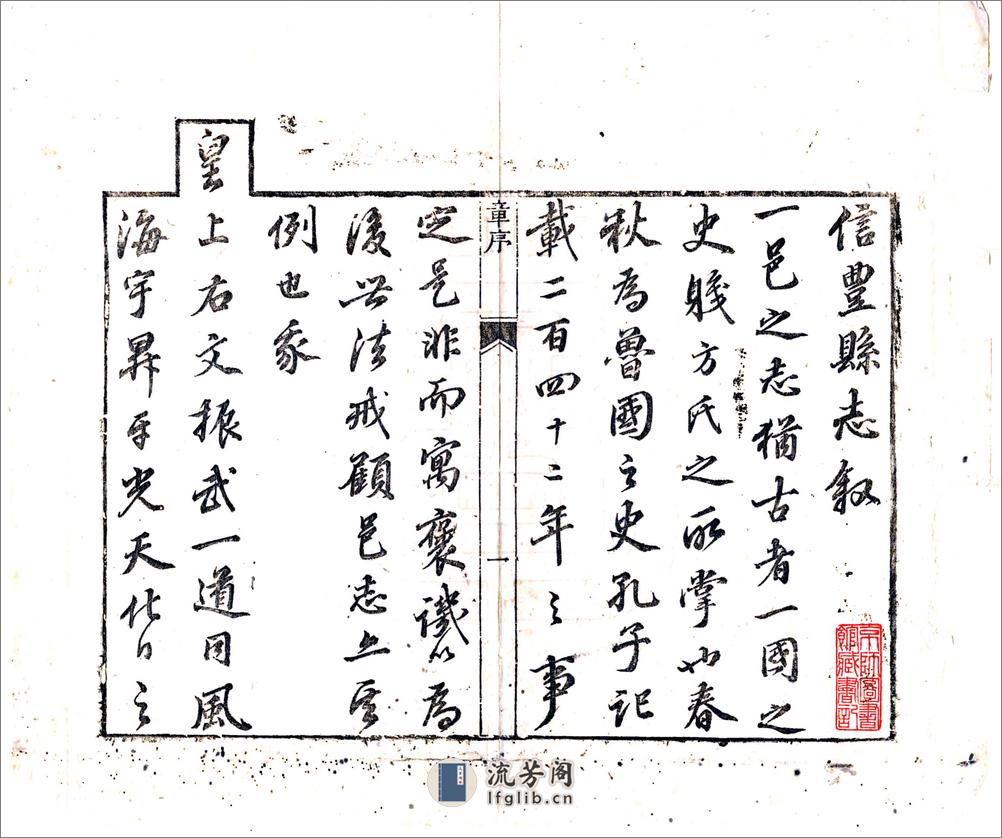 信豐縣志叙
一邑之志猶古者一國之
史職方氏之所掌也春
秋為魯國之史孔子記
載二百四十二年之事
章序
一
定是非而寓褒譏以為
後世法戒顧邑志亦其
例也我
皇上右文振武一道同風
海宇昇平光天化日之
流芳阁
lfglib.cn